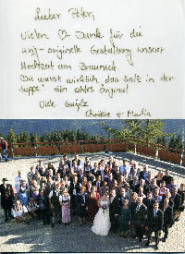 Lieber Peter,
Vielen ♡ Dank für die
urig-originelle Gestaltung unserer
Hochzeit am Brauneck
Du warst wirklich das Salz in der
Suppe - ein echtes Original
Viele Grüße
Christine + Martin